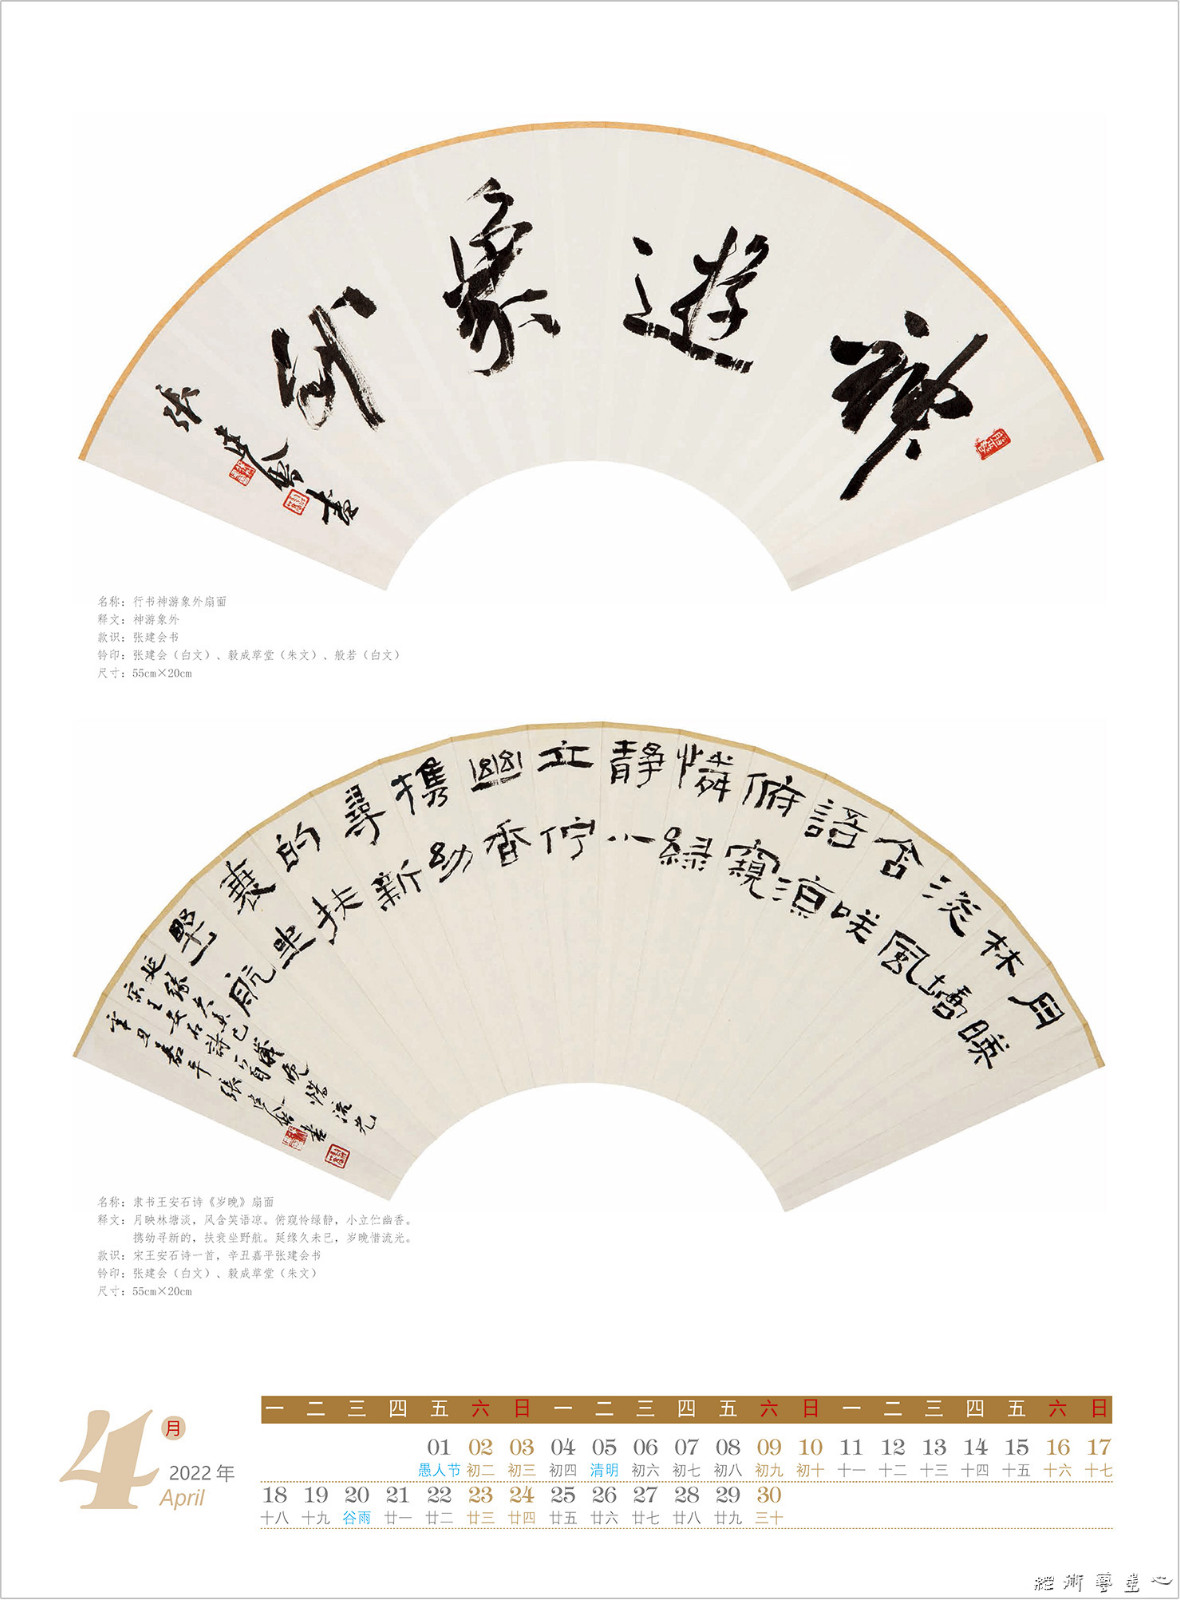 神遊象外
張建會書
名称：行书神游象外扇面
释文：神游象外
款识：张建会书
钤印：张建会（白文）、毅成草堂（朱文）、般若（白文）
尺寸：55cm×20cm
月映
林塘
淡風
含咲
語涼
俯窺
憐綠
靜小
立佇
幽香
攜幼
尋新
的扶
衰坐
野航
延緣久未已歲晚惜流光
宋王安石詩一首
辛丑嘉平張建會書
名称：隶书王安石诗《岁晚》扇面
释文：月映林塘淡，风含笑语凉。俯窥怜绿静，小立伫幽香。
携幼寻新的，扶衰坐野航。延缘久未已，岁晚惜流光。
款识：宋王安石诗一首，辛丑嘉平张建会书
钤印：张建会（白文）、毅成草堂（朱文）
尺寸：55cm×20cm
4月
2022 年
April
一 二 三 四 五 六 日 一 二 三 四 五 六 日 一 二 三 四 五 六 日
01 02 03 04 05 06 07 08 09 10 11 12 13 14 15 16 17
愚人节 初二 初三 初四 清明 初六 初七 初八 初九 初十 十一 十二 十三 十四 十五 十六 十七
18 19 20 21 22 23 24 25 26 27 28 29 30
十八 十九 谷雨 廿一 廿二 廿三 廿四 廿五 廿六 廿七 廿八 廿九 三十